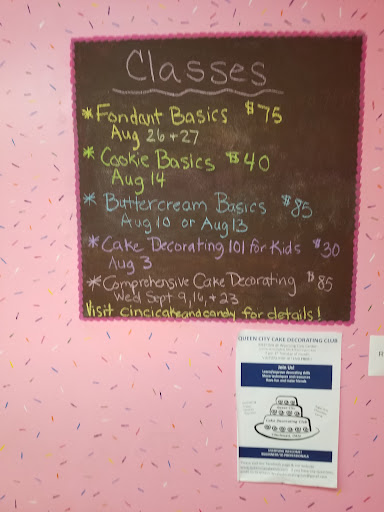 Classes
*Fondant Basics $75
Aug 26 + 27
*Cookie Basics $40
Aug 14
*Buttercream Basics $85
Aug 10 or Aug 13
*Cake Decorating 101 for Kids $30
Aug 3
*Comprehensive Cake Decorating $85
Wed Sept 9, 16, + 23
Visit cincicakeandcandy for details!
QUEEN CITY CAKE DECORATING CLUB
Join Us!
Cake Decorating Club